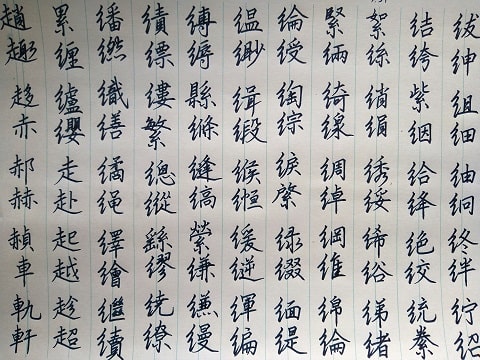 紱紳組細紬絅終絆紵紹
結絝紫絪給絳絕絞統絭
絮絲綃絹綉綏絺綌綈緒
緊緉綺線綢綽綱維綿綸
綸綬綯綜綟綮緑綴緬緹
緼緲緝緞緱緪緩緷編
縛縟縣縧縫縞縈縑縵
績縹縷繁總縱繇繆繞繚
繙繎織繕繘繩繹繪繼續
累纏纑纓走赴起越趁超
趙趣趍赤郝赫赬車軌軒